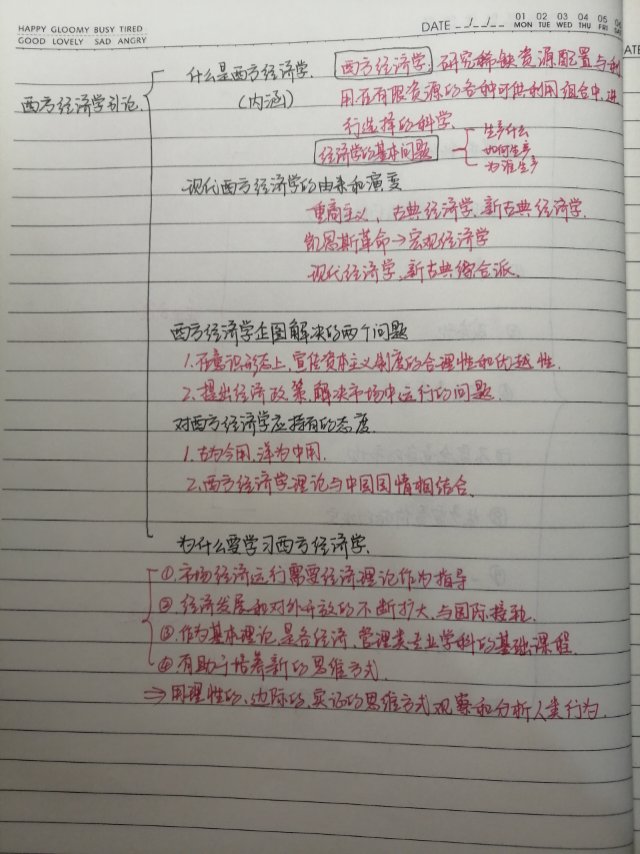 HAPPY GLOOMY BUSY TIRED
GOOD LOVELY SAD ANGRY
DATE _ / _ / _
01 02 03 04 05
MON TUE WED THU FRI
什么是西方经济学.
(内涵)
西方经济学引论.
西方经济学: 研究稀缺资源配置与利
用在有限资源的各种可供利用组合中,进
行选择的科学.
经济学的基本问题
生产什么
如何生产
为谁生产
现代西方经济学的由来和演变
重商主义、古典经济学.新古典经济学.
凯恩斯革命→宏观经济学
现代经济学.新古典综合派.
西方经济学企图解决的两个问题
1.在意识形态上,宣传资本主义制度的合理性和优越性.
2.提出经济政策,解决市场中运行的问题
对西方经济学应持有的态度.
1.古为今用,洋为中用.
2.西方经济学理论与中国国情相结合.
为什么要学习西方经济学.
①.市场经济运行需要经济理论作为指导
②.经济发展和对外开放的不断扩大,与国际接轨.
③.作为基本理论,是各经济、管理类专业学科的基础课程.
④.有助于培养新的思维方式.
⇒用理性的、边际的,实证的思维方式观察和分析人类行为.